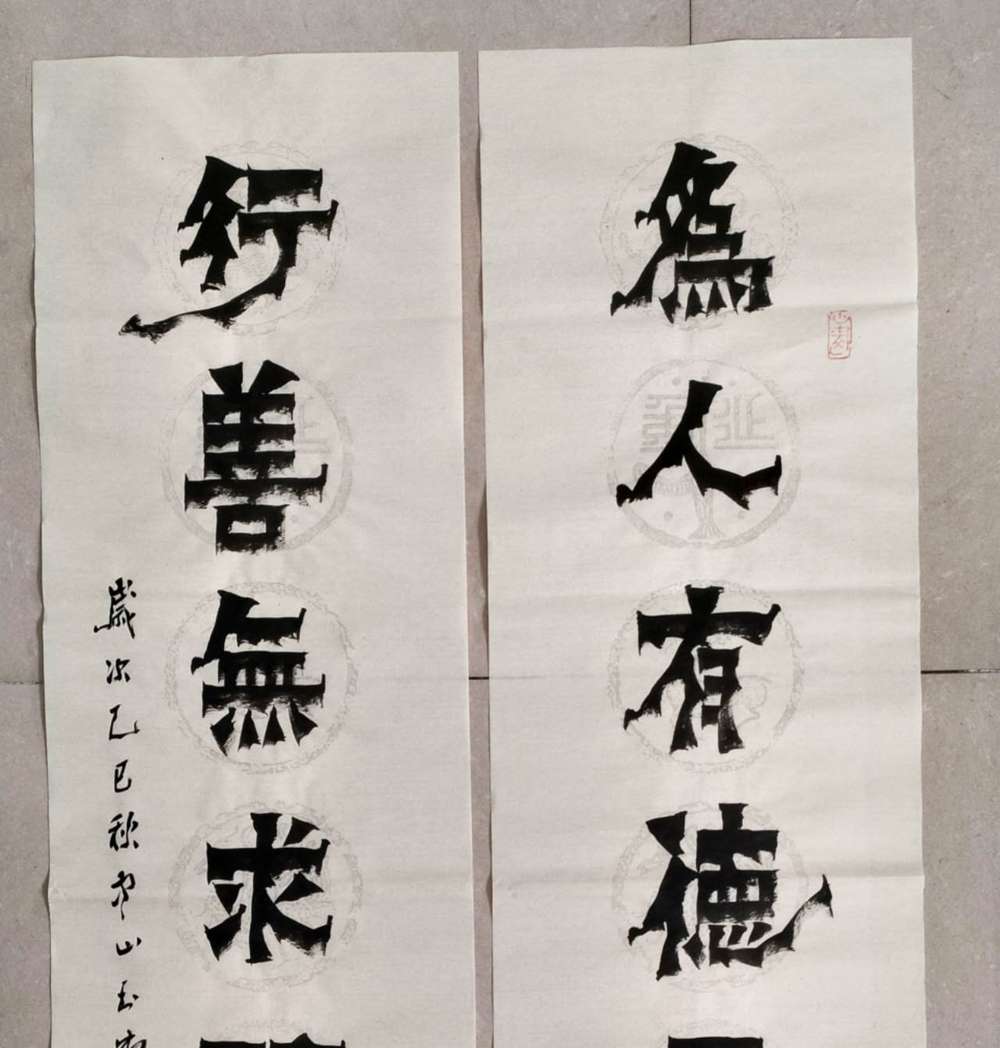 為人有德
行善無求
歲次乙巳秋